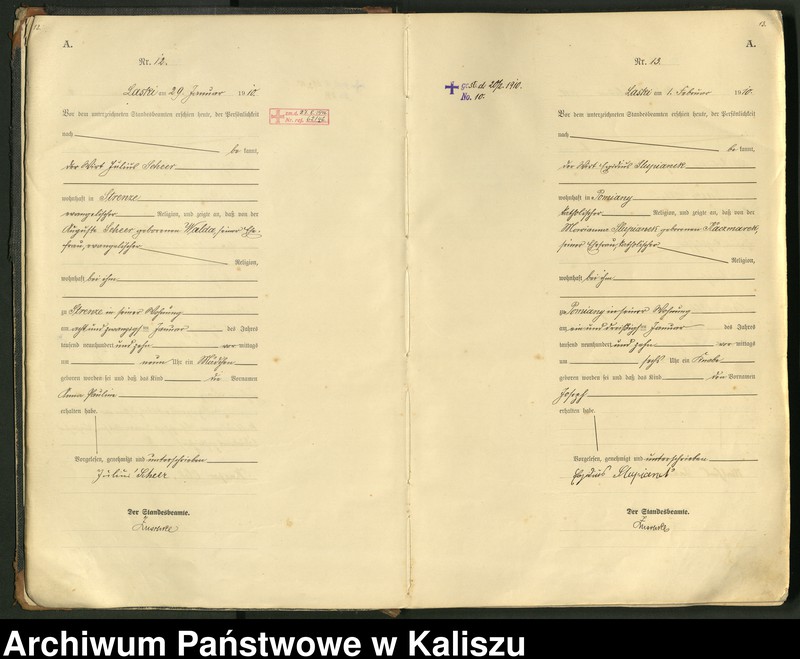 12.
A.
Nr. 12.
Laski am 29. Januar 1910.
Vor dem unterzeichneten Standesbeamten erschien heute, der Persönlichkeit
nach
be kannt,
der Wirt Julius Scheer
wohnhaft in Strenze
evangelischer Religion, und zeigte an, daß von der
Auguste Scheer geborenen Walda, seiner Ehe-
frau, evangelischer
Religion,
wohnhaft bei ihm
zu Strenze in seiner Wohnung
am acht und zwanzigsten Januar des Jahres
tausend neunhundert und zehn vor mittags
um neun Uhr ein Mädchen
geboren worden sei und daß das Kind die Vornamen
Anna Pauline
erhalten habe.
Vorgelesen, genehmigt und unterschrieben
Julius Scheer
Der Standesbeamte.
13.
A.
Nr. 13.
gest. d. 1910.
No. 10.
Laski am 1. Februar 1910.
Vor dem unterzeichneten Standesbeamten erschien heute, der Persönlichkeit
nach
be kannt,
der Wirt Egidius Slupianek
wohnhaft in Pomiany
katholischer Religion, und zeigte an, daß von der
Marianna Slupianek geborenen Kaczmarek,
seiner Ehefrau, katholischer
Religion,
wohnhaft bei ihm
zu Pomiany in seiner Wohnung
am ein und dreißigsten Januar des Jahres
tausend neunhundert und zehn vor mittags
um sechs Uhr ein Knabe
geboren worden sei und daß das Kind den Vornamen
Joseph
erhalten habe.
Vorgelesen, genehmigt und unterschrieben
Der Standesbeamte.
Archiwum Państwowe w Kaliszu